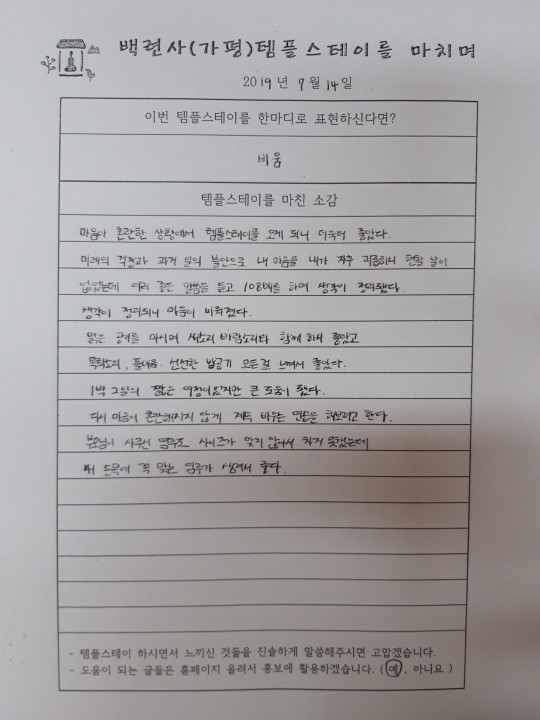 백련사(가평)템플스테이를 마치며
2019년 7월 14일
이번 템플스테이를 한마디로 표현하신다면?
비움
템플스테이를 마친 소감
마음이 혼란한 상황에서 템플스테이를 오게 되니 더욱더 좋았다.
미래의 걱정과 과거 일의 불안으로 내 마음을 내가 자주 괴롭히니 편할 날이
없었는데 여러 좋은 말씀을 듣고 108배를 하여 생각이 정리됐다.
생각이 정리되니 마음이 비워졌다.
맑은 공기를 마시며 새소리 바람소리와 함께 하니 좋았고
목탁소리, 풀내음, 선선한 밤공기 모든걸 느껴서 좋았다.
1박 2일의 짧은 여정이었지만 큰 도움이 됐다.
다시 마음이 혼란해지지 않게 계속 비우는 연습을 하려고 한다.
부모님이 사주신 염주도 사이즈가 맞지 않아서 차지 못했는데
내 손목에 꼭 맞는 염주가 생겨서 좋다.
- 템플스테이 하시면서 느끼신 것들을 진솔하게 말씀해주시면 고맙겠습니다.
- 도움이 되는 글들은 홈페이지 올려서 홍보에 활용하겠습니다. ( 예 , 아니요 )